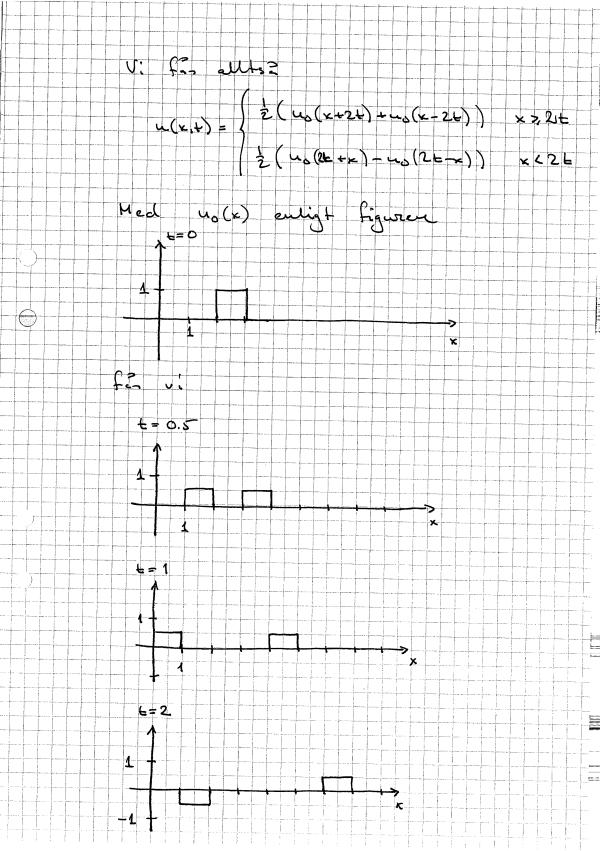 Vi får alltså
u(x,t) = { ½ ( u₀(x+2t) + u₀(x-2t) )   x ≥ 2t
½ ( u₀(2t+x) - u₀(2t-x) )   x < 2t
Med u₀(x) enligt figuren
t=0
1
1
x
får vi
t = 0.5
1
1
x
t=1
1
1
x
t=2
1
x
-1